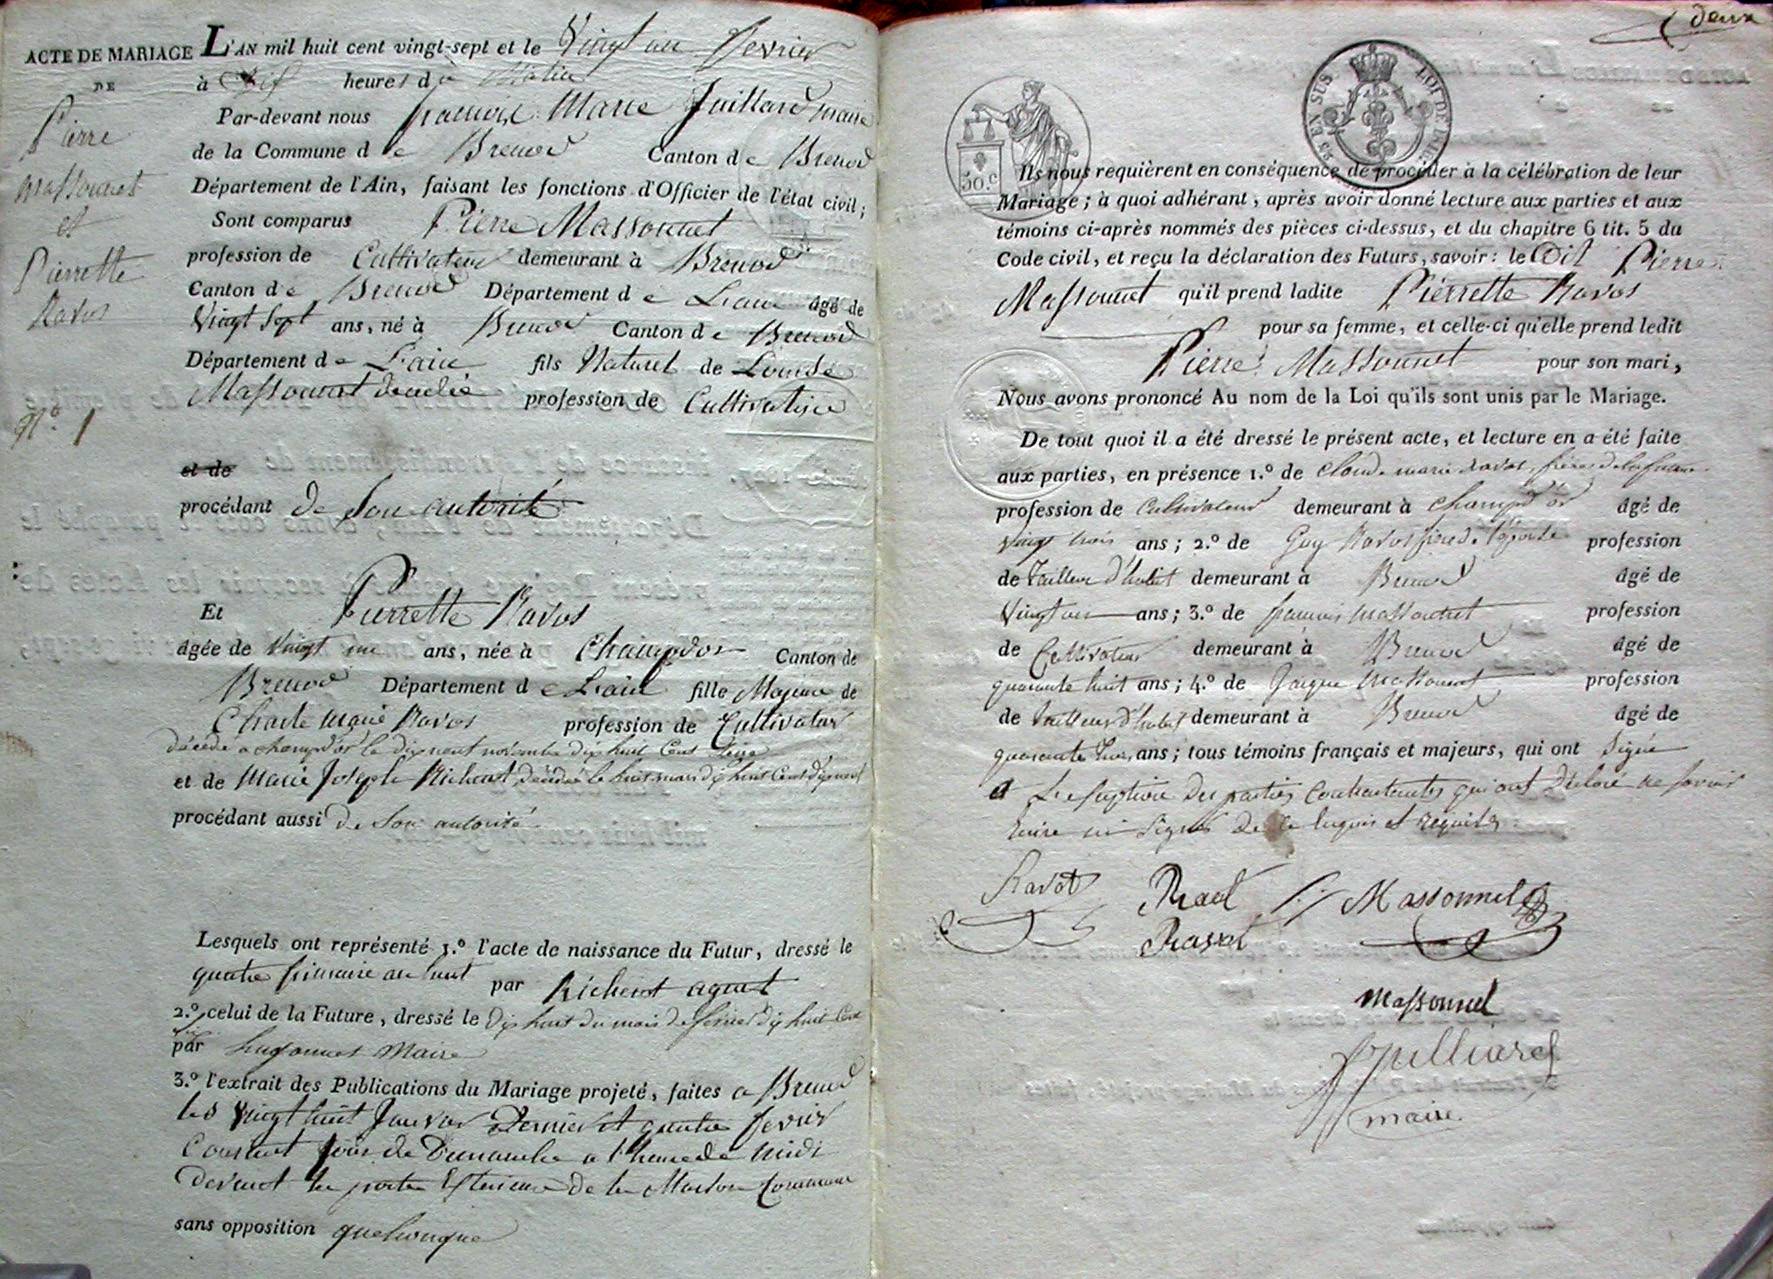 ACTE DE MARIAGE
DE
Pierre
Massonnet
et
Pierrette
Ravos
N.º 1
L'AN mil huit cent vingt-sept et le Vingt un fevrier
à Dix heures du Matin
Par-devant nous francois Marie Juillard maire
de la Commune de Brenod Canton de Brenod
Département de l'Ain, faisant les fonctions d'Officier de l'état civil;
Sont comparus Pierre Massonnet
profession de Cultivateur demeurant à Brenod
Canton de Brenod Département de L'ain âgé de
Vingt Sept ans, né à Brenod Canton de Brenod
Département de L'ain fils Naturel de Louise
Massonnet decedée profession de Cultivatrice
et de
procédant de Son autorité
Et Pierrette Ravos
âgée de Vingt un ans, née à Champdor Canton de
Brenod Département de L'ain fille Majeure de
Charle marie Ravos profession de Cultivateur
décédé a champd'or le dix neuf novembre dix huit Cent Seize
et de Marie Josephe Richerot décédée le huit mars dix huit Cent dix neuf
procédant aussi de Son autorité
Lesquels ont représenté 1.º l'acte de naissance du Futur, dressé le
quatre frimaire an huit par Richerot agent
2.º celui de la Future, dressé le Dix huit du mois de fevrier dix huit Cent
Six
par hugonnet Maire
3.º l'extrait des Publications du Mariage projeté, faites a Brenod
les Vingt huit Janvier Dernier et quatre fevrier
Courant Jour de Dimanche a l'heure de Midi
Devant la porte Exterieure de la Maison Commune
sans opposition quelconque
deux
50.c
25 EN SUS. LOI DE
Ils nous requièrent en conséquence de procéder à la célébration de leur
Mariage; à quoi adhérant, après avoir donné lecture aux parties et aux
témoins ci-après nommés des pièces ci-dessus, et du chapitre 6 tit. 5 du
Code civil, et reçu la déclaration des Futurs, savoir: le Dit Pierre
Massonnet qu'il prend ladite Pierrette Ravos
pour sa femme, et celle-ci qu'elle prend ledit
Pierre Massonnet pour son mari,
Nous avons prononcé Au nom de la Loi qu'ils sont unis par le Mariage.
De tout quoi il a été dressé le présent acte, et lecture en a été faite
aux parties, en présence 1.º de Cloude marie Ravos, frère de la future
profession de Cultivateur demeurant à Champd'or âgé de
Vingt trois ans; 2.º de Guy Ravos frère de l'épouse profession
de Tailleur d'habit demeurant à Brenod âgé de
Vingt un ans; 3.º de francois Massonnet profession
de Cultivateur demeurant à Brenod âgé de
quarante huit ans; 4.º de Jacque Massonnet profession
de tailleur d'habit demeurant à Brenod âgé de
quarante ans; tous témoins français et majeurs, qui ont Signé
a L'exeption des parties Contractantes qui ont Déclaré ne savoir
Ecrire ni Signer de ce enquis et requis
Ravot Ravot J. f Massonnet
Ravot
Massonnet
f Juilliard
maire.